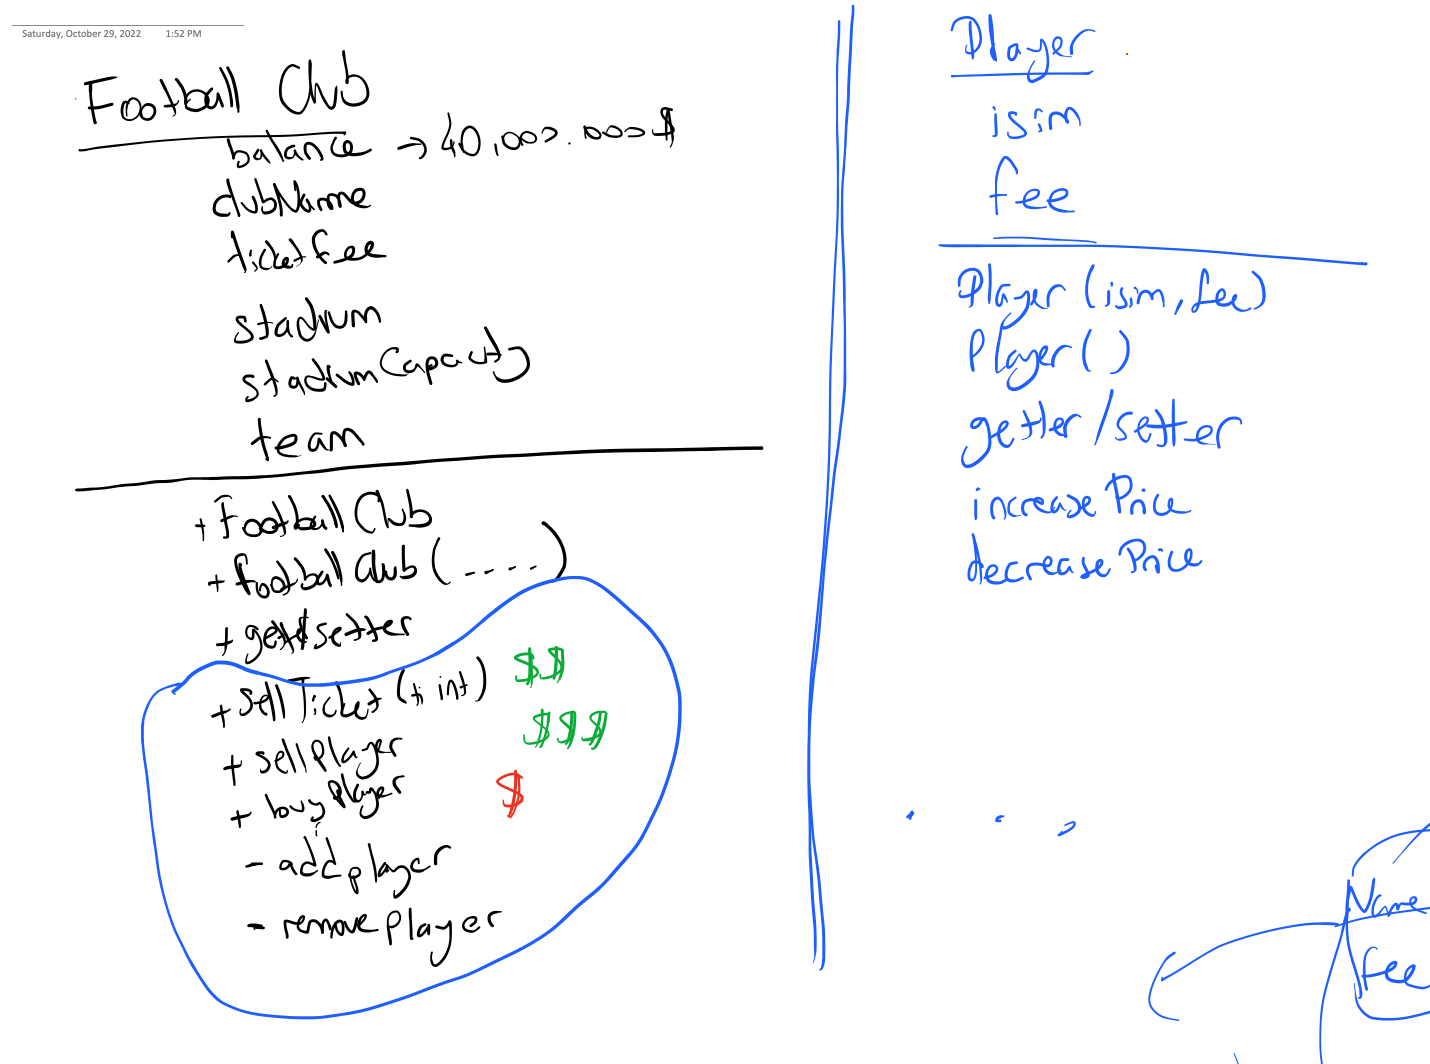 Saturday, October 29, 2022 1:52 PM
Football Club
balance → 40,000.000$
clubName
ticketfee
stadium
stadiumCapacity
team
+ Football Club
+ football Club (....)
+ gett/setter
+ sell Ticket (ti int) $$
+ sellPlayer $$$
+ buy Player $
- addplayer
- remove player
Player
isim
fee
Player (isim, fee)
Player ( )
getter/setter
increase Price
decrease Price
Name
fee